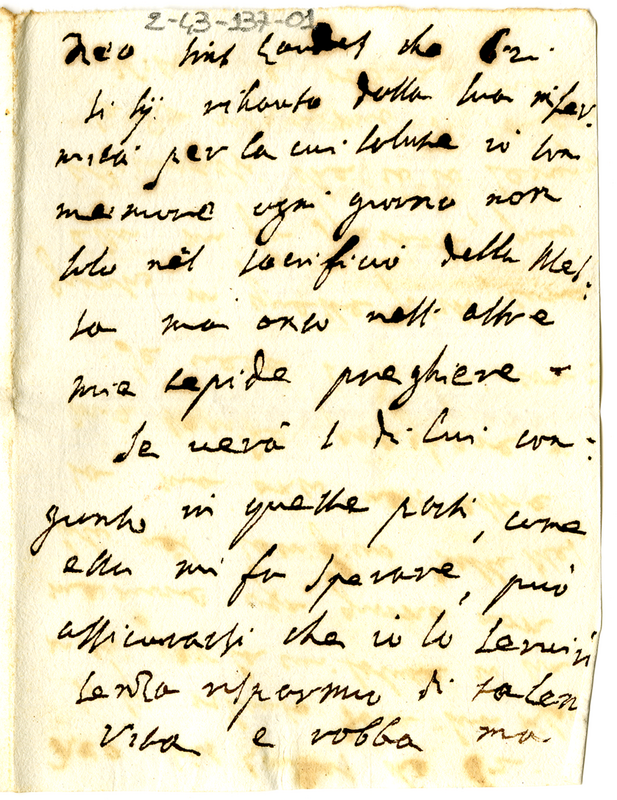 2-43-137-01
Dio sia che
si sij rihauto dalla sua infer:
mità per la cui salute io fon
memoria ogni giorno non
solo nel sacrificio della Mes:
sa ma anco nell altre
mie tepide preghiere
Se verà l di lui con:
giunto in queste parti, come
ella mi fa sperare, può
assicurarsi che io lo servirò
senza risparmio di
vita e robba ma